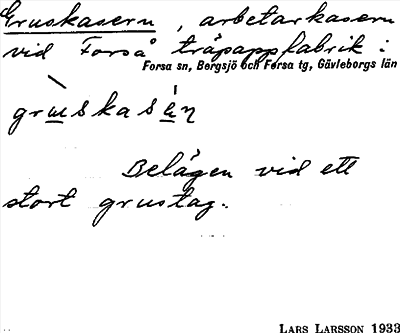 Gruskasern, arbetarkasern
vid Forså träpappfabrik:
Forsa sn, Bergsjö och Forsa tg, Gävleborgs län
gruskasen
Belägen vid ett
stort grustag.
LARS LARSSON 1933